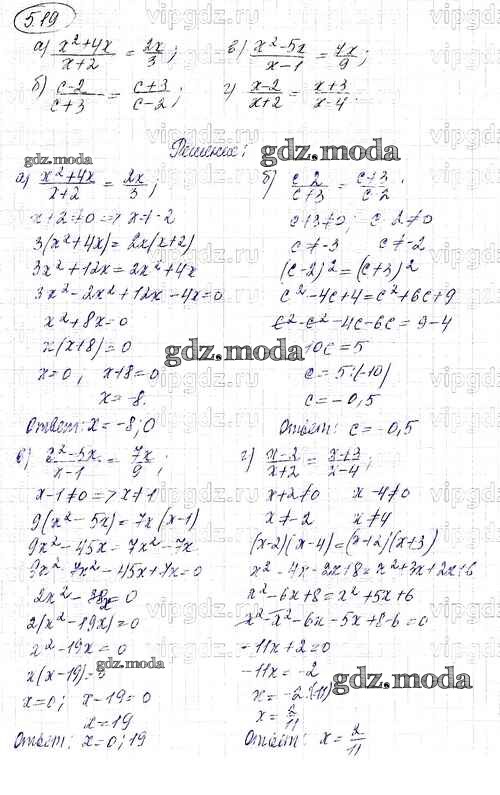 519
а) x²+4x/x+2 = 2x/3; в) x²-5x/x-1 = 7x/9;
б) c-2/c+3 = c+3/c-2; г) x-2/x+2 = x+3/x-4.
Решение:
а) x²+4x/x+2 = 2x/3;
x+2≠0 => x≠-2
3(x²+4x)=2x(x+2)
3x²+12x=2x²+4x
3x²-2x²+12x-4x=0
x²+8x=0
x(x+8)=0
x=0; x+8=0
x=-8.
Ответ: x=-8; 0
б) c-2/c+3 = c+3/c-2.
c+3≠0; c-2≠0
c≠-3 c≠-2
(c-2)²=(c+3)²
c²-4c+4=c²+6c+9
c²-c²-4c-6c=9-4
-10c=5
c=5:(-10)
c=-0,5
Ответ: c=-0,5
в) x²-5x/x-1 = 7x/9;
x-1≠0 => x≠1
9(x²-5x)=7x(x-1)
9x²-45x=7x²-7x
9x²-7x²-45x+7x=0
2x²-38x=0
2(x²-19x)=0
x²-19x=0
x(x-19)=0
x=0; x-19=0
x=19
Ответ: x=0; 19
г) x-2/x+2 = x+3/x-4;
x+2≠0 x-4≠0
x≠-2 x≠4
(x-2)(x-4)=(x+2)(x+3)
x²-4x-2x+8=x²+3x+2x+6
x²-6x+8=x²+5x+6
x²-x²-6x-5x+8-6=0
-11x+2=0
-11x=-2
x=-2:(-11)
x=2/11
Ответ: x=2/11
gdz.moda
gdz.moda
gdz.moda
gdz.moda
gdz.moda
vipgdz.ru